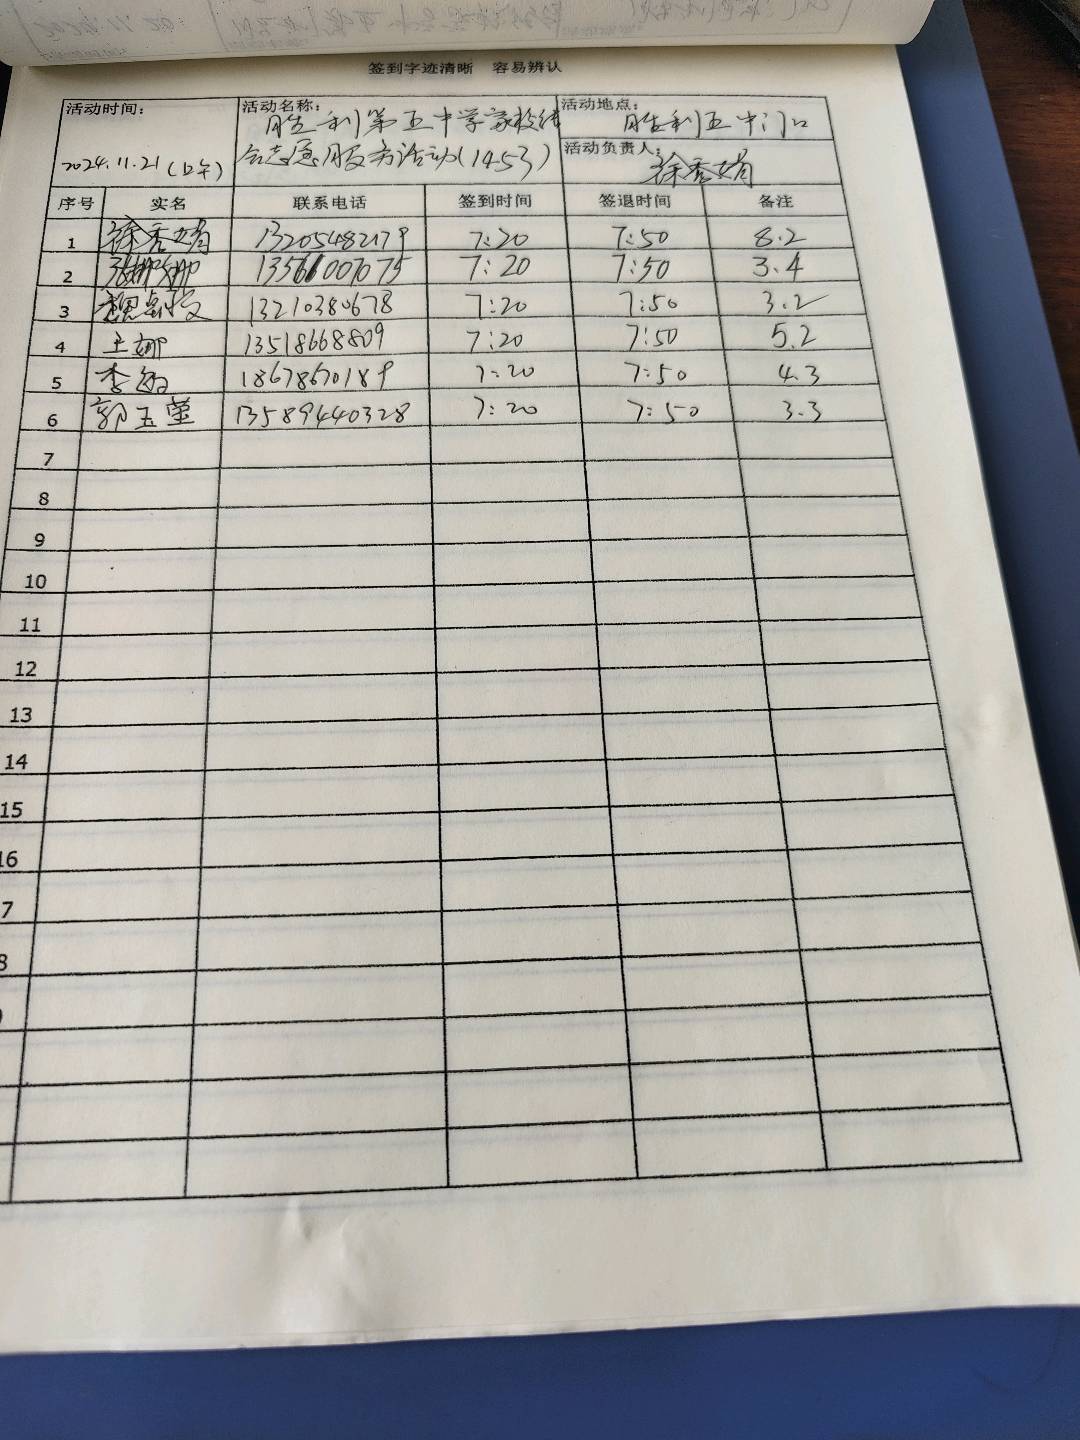 签到字迹清晰 容易辨认
活动时间： 活动名称： 活动地点：
胜利第五中学家校结 胜利五中门口
2024.11.21(上午) 合志愿服务活动(1453) 活动负责人： 徐秀娟
序号 实名 联系电话 签到时间 签退时间 备注
1 徐秀娟 13205482179 7:20 7:50 8.2
2 张娜娜 13561007075 7:20 7:50 3.4
3 13210380678 7:20 7:50 3.2
4 王娜 13518668809 7:20 7:50 5.2
5 李 18678670189 7:20 7:50 4.3
6 郭玉莹 13589440328 7:20 7:50 3.3
7
8
9
10
11
12
13
14
15
16
7
8